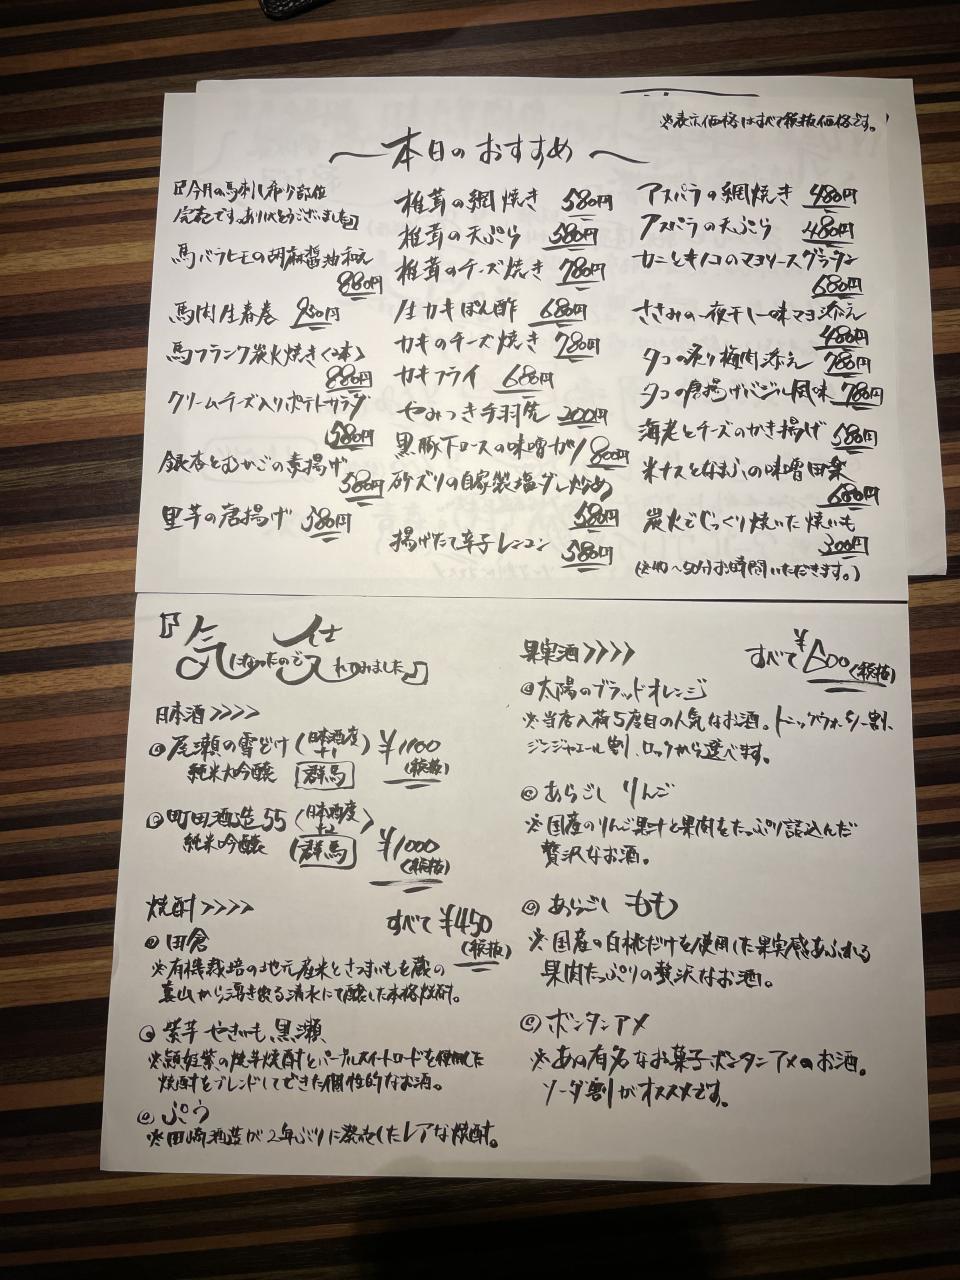 ※表示価格はすべて税抜価格です。
〜本日のおすすめ〜
『今月の馬刺し希少部位
完売です。ありがとうございました』
馬バラヒモの胡麻醤油和え
880円
馬肉生春巻 950円
馬フランク炭火焼き〈2本〉
880円
クリームチーズ入りポテトサラダ
580円
銀杏とむかごの素揚げ
580円
里芋の唐揚げ 580円
椎茸の網焼き 580円
椎茸の天ぷら 580円
椎茸のチーズ焼き 780円
生カキぽん酢 680円
カキのチーズ焼き 780円
カキフライ 680円
やみつき手羽先 200円
黒豚下ロースの味噌がり 800円
砂ズリの自家製塩ダレ炒め
580円
揚げたて辛子レンコン 580円
アスパラの網焼き 480円
アスパラの天ぷら 480円
カニとキノコのマヨソースグラタン
680円
ささみの一夜干し一味マヨ添え
480円
タコの炙り梅肉添え 780円
タコの唐揚げバジル風味 780円
海老とチーズのかき揚げ 580円
米ナスとなまふの味噌田楽
680円
炭火でじっくり焼いた焼いも
300円
(※40〜50分お時間いただきます。)
『気になったので仕入れてみました』
日本酒>>>>
尾瀬の雪どけ〈日本酒度+1〉 ¥1100
純米大吟醸 群馬 (税抜)
町田酒造55〈日本酒度+2〉
純米吟醸 群馬 ¥1000
(税抜)
焼酎>>>> すべて¥450
(税抜)
田倉
※有機栽培の地元産米とさつまいもを蔵の
裏山から湧き出る清水にて醸した本格焼酎。
紫芋 やきいも 黒瀬
※頴娃紫の焼芋焼酎とパープルスイートロードを使用した
焼酎をブレンドしてできた個性的なお酒。
ぷう
※田崎酒造が2年ぶりに発売したレアな焼酎。
果実酒>>>> すべて¥600(税抜)
太陽のブラッドオレンジ
※当店入荷5度目の人気なお酒。トニックウォーター割、
ジンジャエール割、ロックから選べます。
あらごし りんご
※国産のりんご果汁と果肉をたっぷり詰込んだ
贅沢なお酒。
あらごし もも
※国産の白桃だけを使用した果実感あふれる
果肉たっぷりの贅沢なお酒。
ボンタンアメ
※あの有名なお菓子ボンタンアメのお酒。
ソーダ割がオススメです。